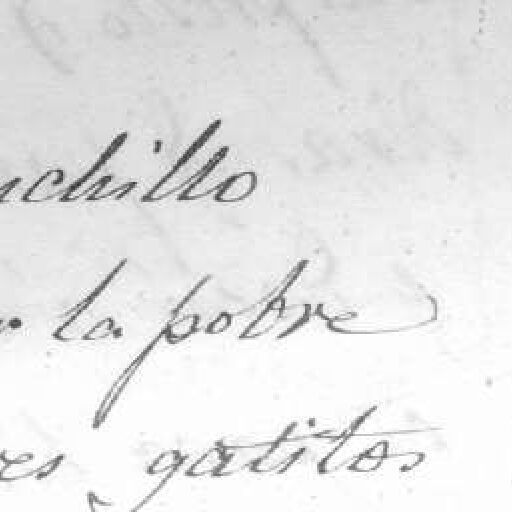 uchillo
la pobre
es gatitos